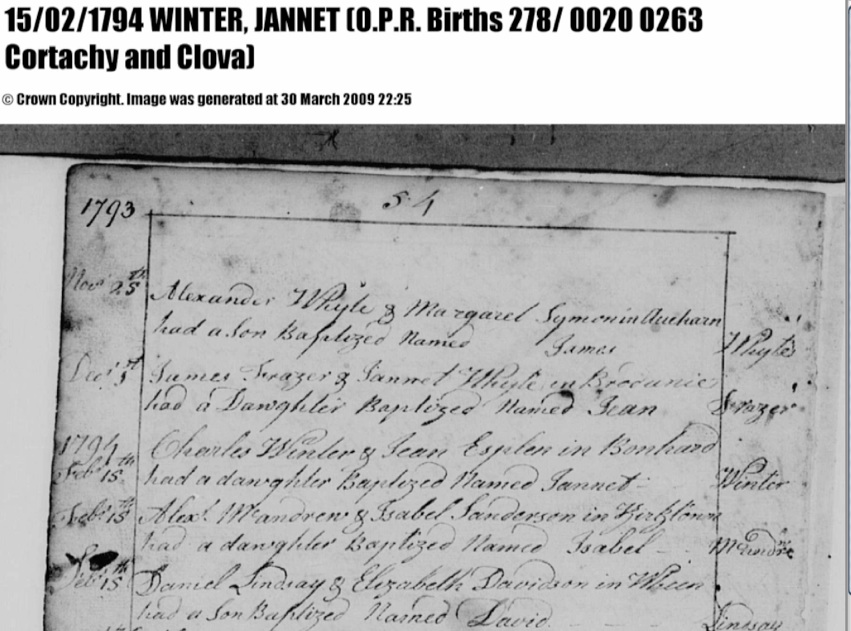 15/02/1794 WINTER, JANNET (O.P.R. Births 278/ 0020 0263
Cortachy and Clova)
© Crown Copyright. Image was generated at 30 March 2009 22:25
1793 54
Novr 25th Alexander Whyte & Margaret Symon in Aucharn
had a Son Baptized Named James Whyte
James Frazer & Jannet Whyte in
had a Dawghter Baptized Named Jean Frazer
1794 Charles Winter & Jean Esplen in Bonhard
Feb 15th had a dawghter Baptized Named Jannet Winter
Feb 15th Alexr. McAndrew & Isabel Sanderson in Kirktown
had a dawghter Baptized Named Isabel
Feb 15th Daniel Lindsay & Elizabeth Davidson in Wheen
had a Son Baptized Named David Lindsay